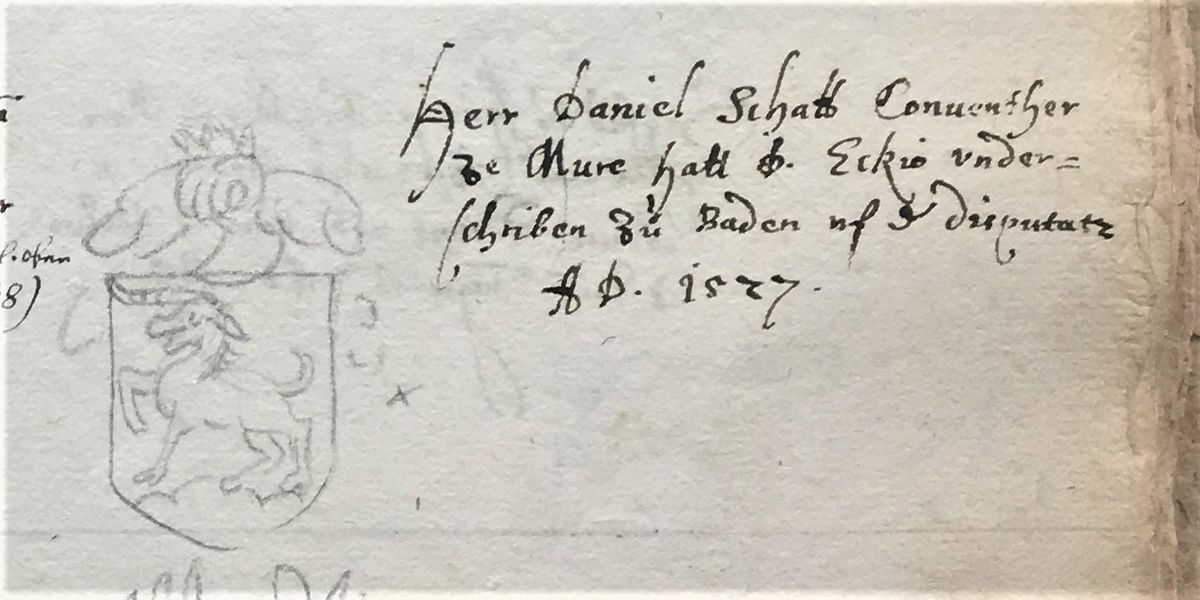 Herr Daniel Schatt Conuenther
ze Mure hatt D. Eckio vnder=
schriben zů Baden vf d disputatz
AD. 1527.
8)